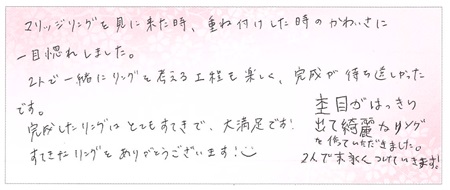 マリッジリングを見に来た時、重ね付けした時のかわいさに
一目惚れしました。
2人で一緒にリングを考える工程も楽しく、完成が待ち遠しかった
です。
完成したリングはとてもすてきで、大満足です!
すてきなリングをありがとうございます!
杢目がはっきり
出て綺麗なリング
を作っていただきました。
2人で末永くつけていきます!